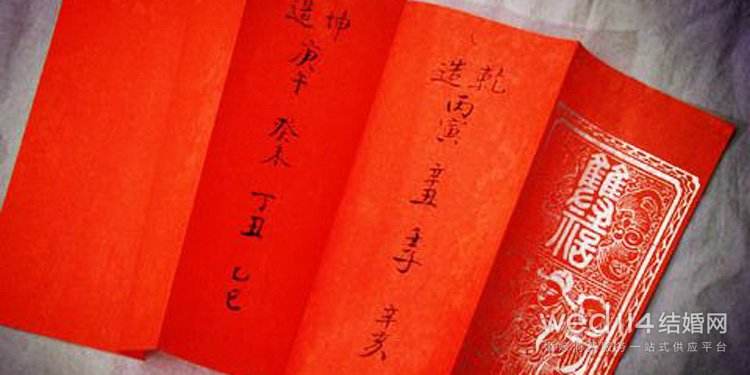 雙
乾造
丙寅 辛丑 壬子 辛亥
坤造
庚午 癸未 丁丑 乙巳
wed114结婚网
一站式供应平台